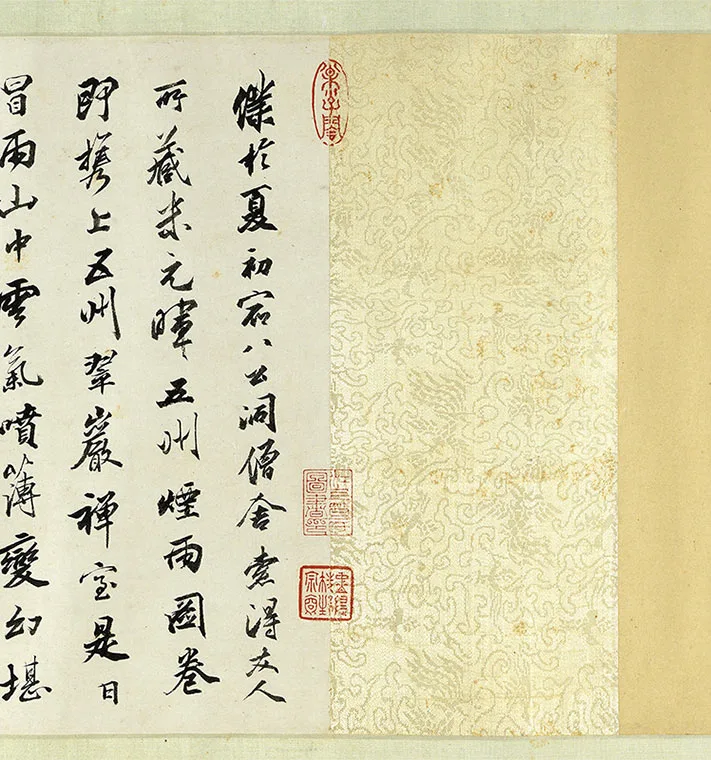 僕於夏初宿八公洞僧舍索得友人
所藏米元暉五州煙雨圖卷
即携上五州翠巖禪室是日
冒雨山中雲氣噴薄變幻堪